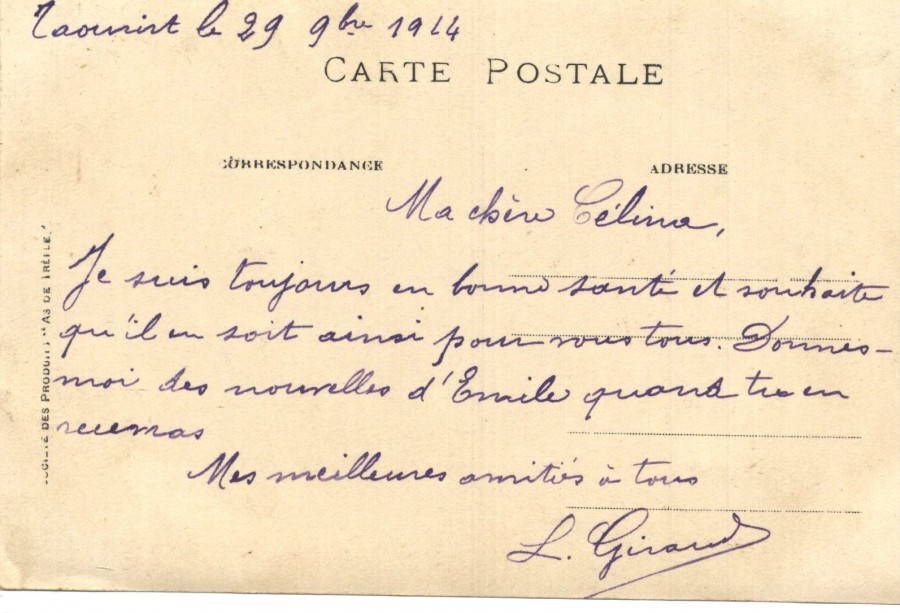 Taourirt le 29 9bre 1914
CARTE POSTALE
CORRESPONDANCE
ADRESSE
Ma chère Célina,
Je suis toujours en bonne santé et souhaite
qu'il en soit ainsi pour vous tous. Donnes-
moi des nouvelles d'Emile quand tu en
recevras
Mes meilleures amitiés à tous
L. Giraud
SOCIÉTÉ DES PRODUITS "AS DE TRÈFLE"